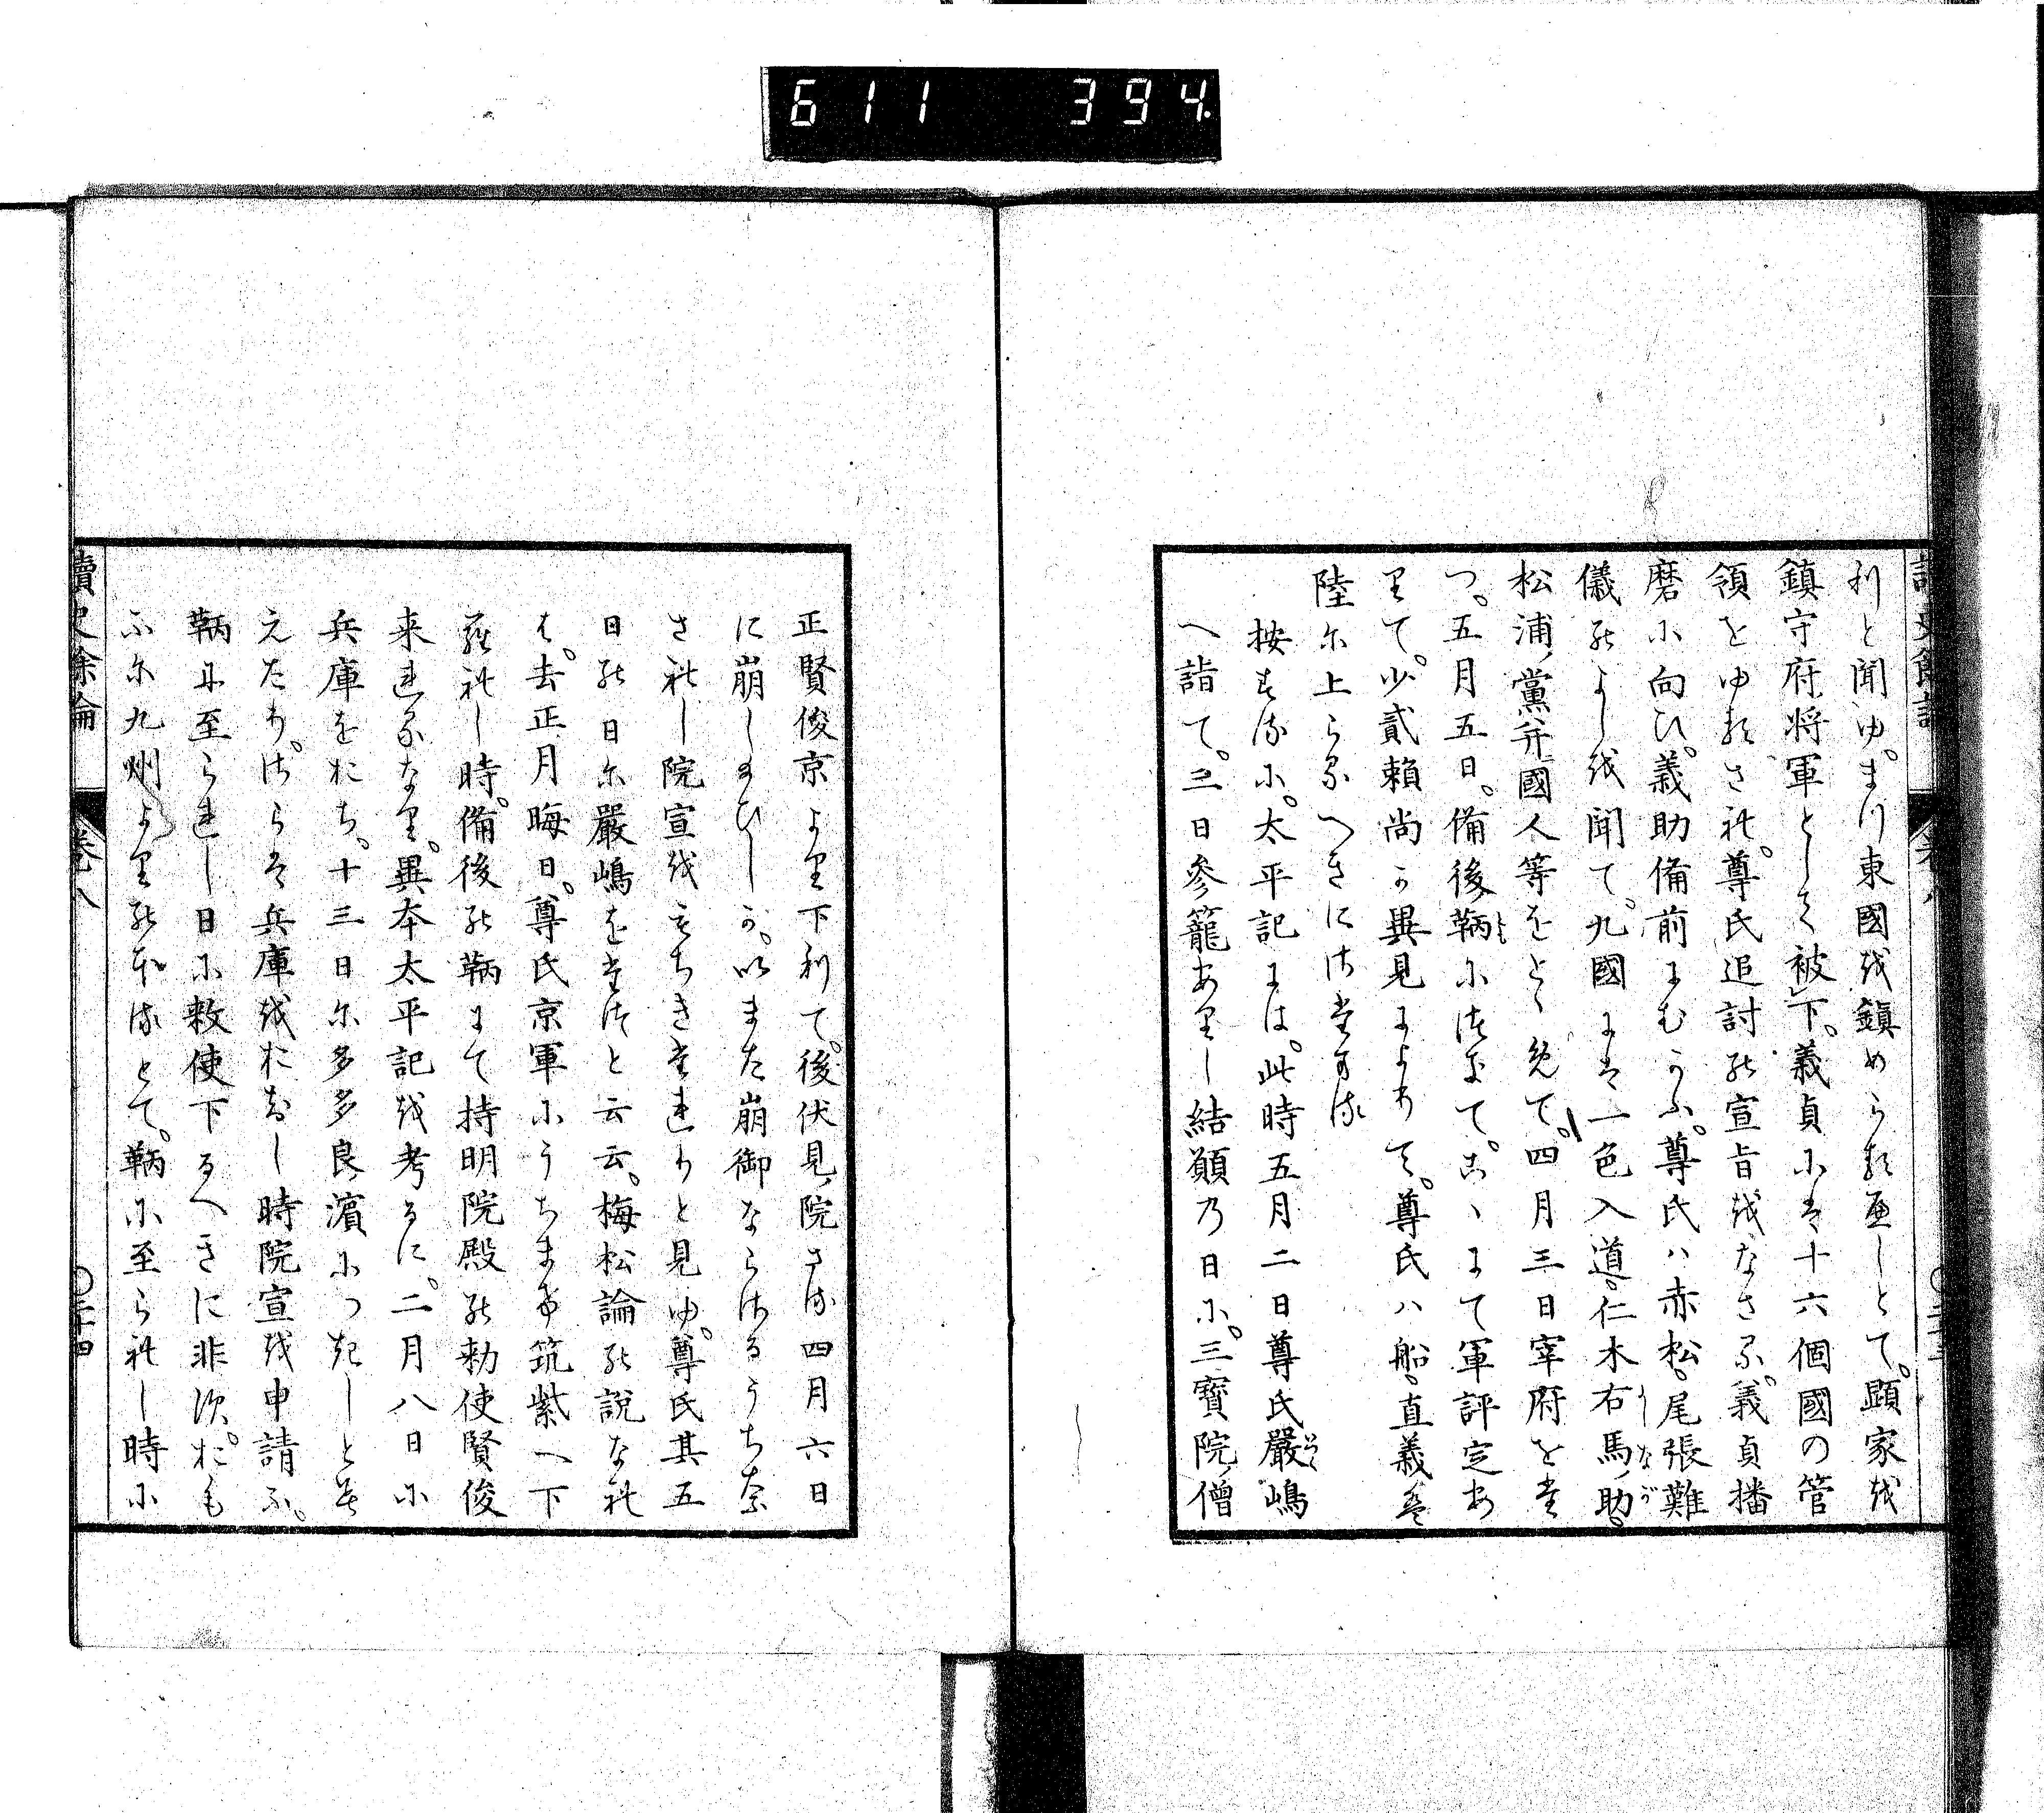 611 394.
利と聞ゆ。まづ東國を鎮めらるべしとて。顕家を
鎮守府将軍として被下。義貞には十六個國の管
領をゆるされ。尊氏追討の宣旨をなさる。義貞播
磨に向ひ。義助備前にむかふ。尊氏ハ赤松。尾張難
儀のよしを聞て。九國には一色入道。仁木右馬助。
松浦黨并國人等をとゞめて。四月三日宰府をた
つ。五月五日。備後鞆につきて。こゝにて軍評定あ
りて。少貳頼尚か異見によりて。尊氏ハ船。直義は
陸に上らるへきにさたまる
按するに。太平記には。此時五月二日尊氏嚴嶋
へ詣て。三日參籠ありし結願乃日に。三寶院僧
讀史餘論 巻八 〇二十四
正賢俊京より下りて。後伏見院さる四月六日
に崩しまひしか。いまた崩御ならさるうちな
されし院宣をもちきたれりと見ゆ。尊氏其五
日の日に嚴嶋をたつと云云。梅松論の説なれ
は。去正月晦日。尊氏京軍にうちまけ筑紫へ下
られし時。備後の鞆にて持明院殿の勅使賢俊
来れるなり。異本太平記を考るに。二月八日に
兵庫をおち。十三日に多多良濱につきしと見
えたり。さらは兵庫をおちし時院宣を申請ふ。
鞆に至られし日に敕使下るへきに非す。おも
ふに九州よりのほるとて。鞆に至られし時に